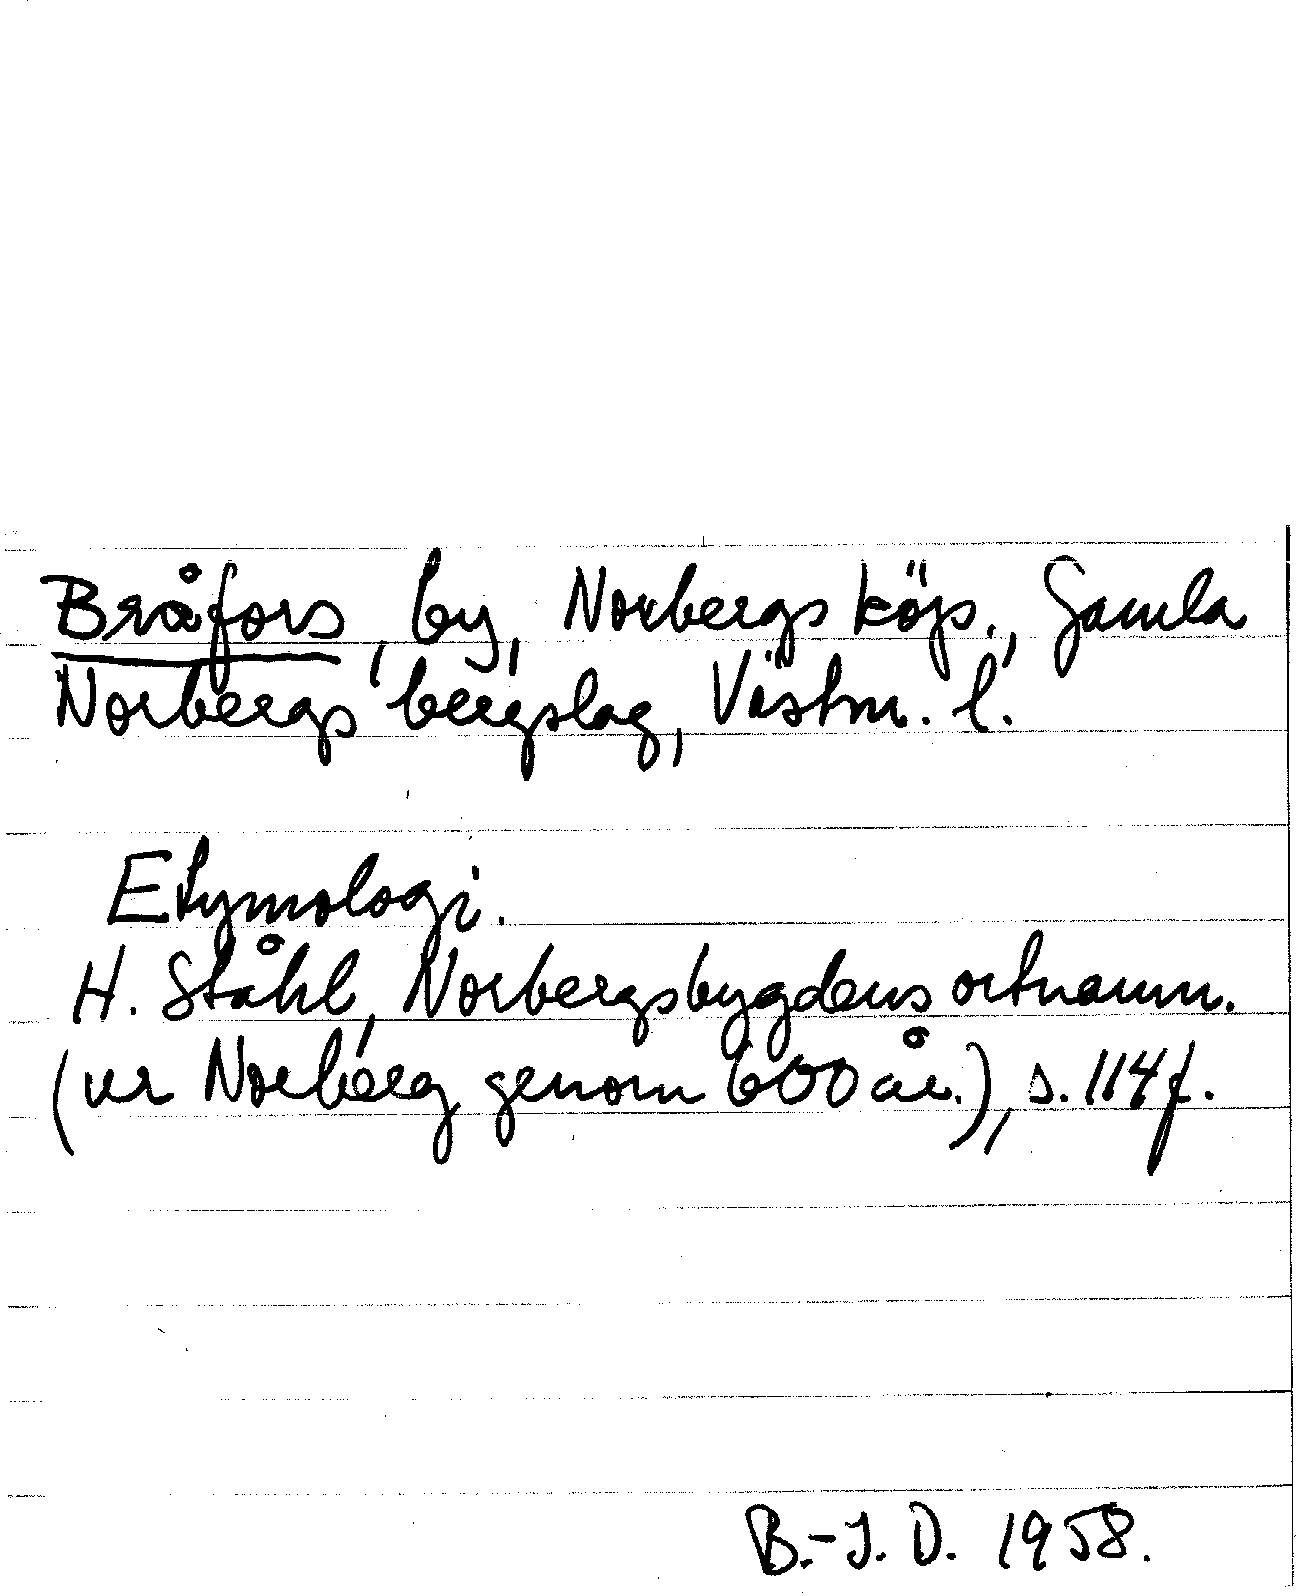 Bråfors, by, Norbergs köp., Gamla
Norbergs bergslag, Västm. l.
Etymologi.
H. Ståhl, Norbergsbygdens ortnamn.
(ur Norberg genom 600 år.), s. 114 f.
B.-J. D. 1958.